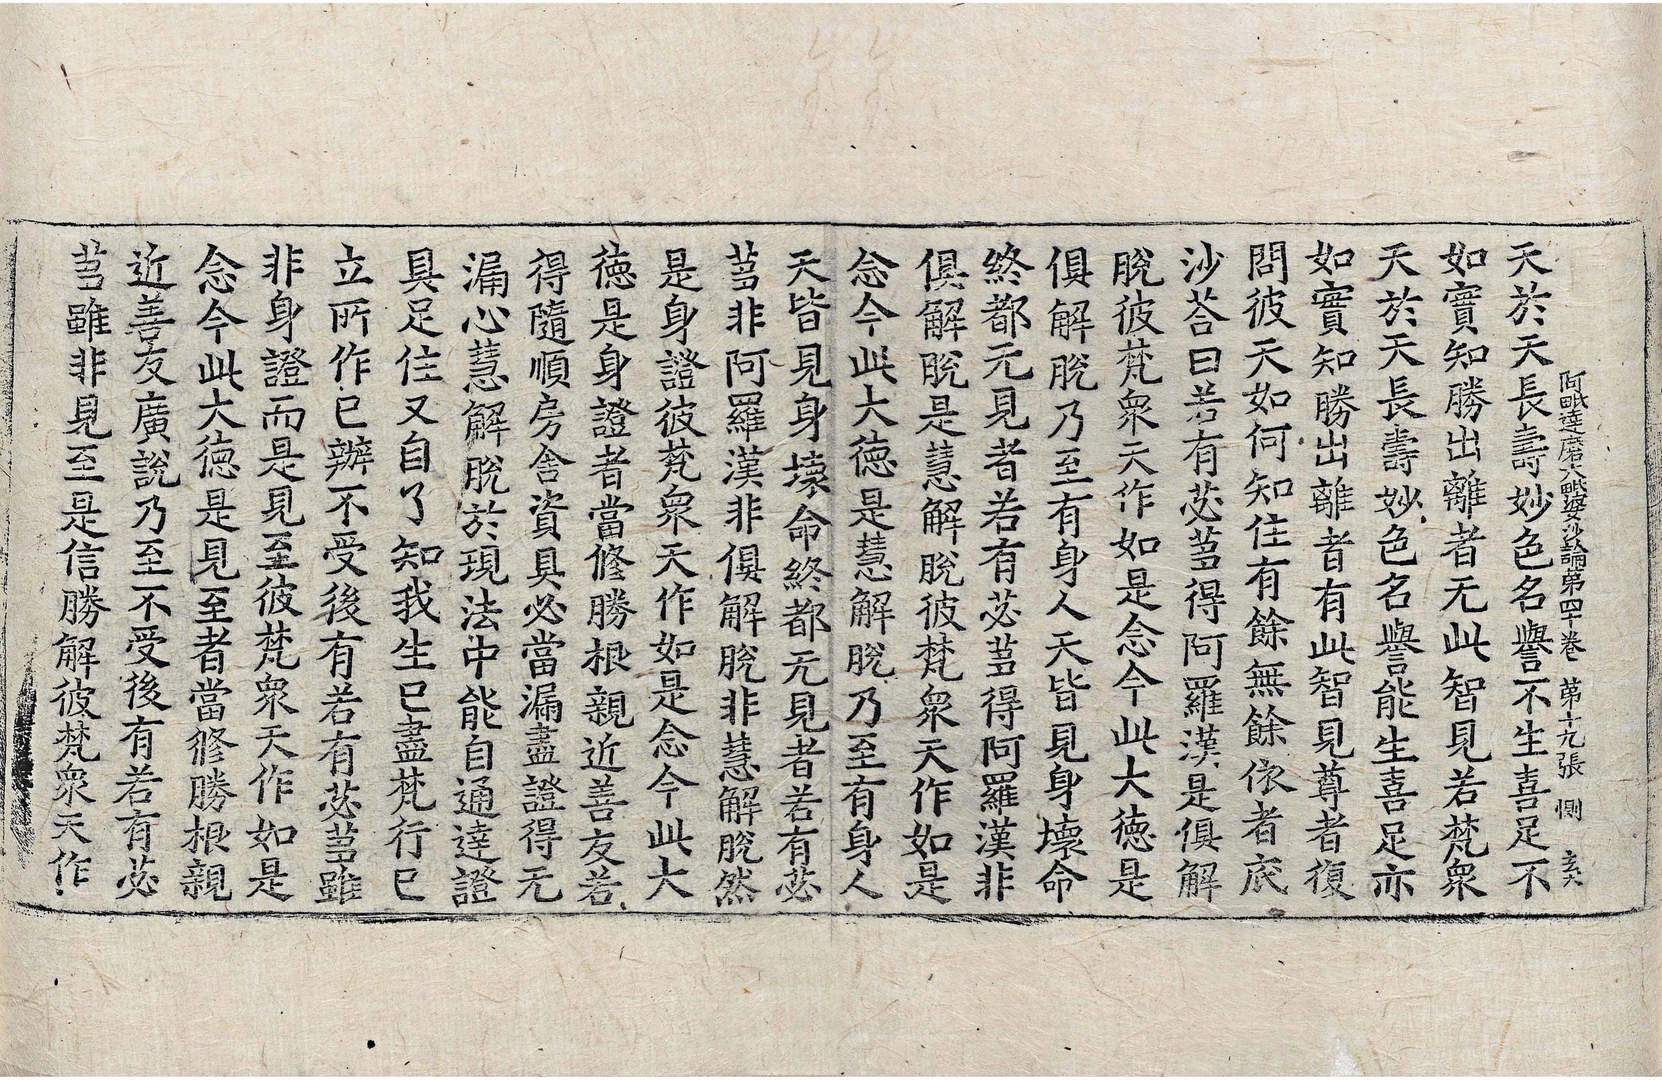 阿毗達磨大毗婆沙論第四十卷 第十九張 惻 玄六
天於天長壽妙色名譽不生喜足不
如實知勝出離者无此智見若梵衆
天於天長壽妙色名譽能生喜足亦
如實知勝出離者有此智見尊者復
問彼天如何知住有餘無餘依者底
沙荅曰若有苾芻得阿羅漢是俱解
脫彼梵衆天作如是念今此大德是
俱解脫乃至有身人天皆見身壞命
終都无見者若有苾芻得阿羅漢非
俱解脫是慧解脫彼梵衆天作如是
念今此大德是慧解脫乃至有身人
天皆見身壞命終都无見者若有苾
芻非阿羅漢非俱解脫非慧解脫然
是身證彼梵衆天作如是念今此大
德是身證者當修勝根親近善友若
得隨順房舍資具必當漏盡證得无
漏心慧解脫於現法中能自通達證
具足住又自了知我生已盡梵行已
立所作已辦不受後有若有苾芻雖
非身證而是見至彼梵衆天作如是
念今此大德是見至者當修勝根親
近善友廣說乃至不受後有若有苾
芻雖非見至是信勝解彼梵衆天作